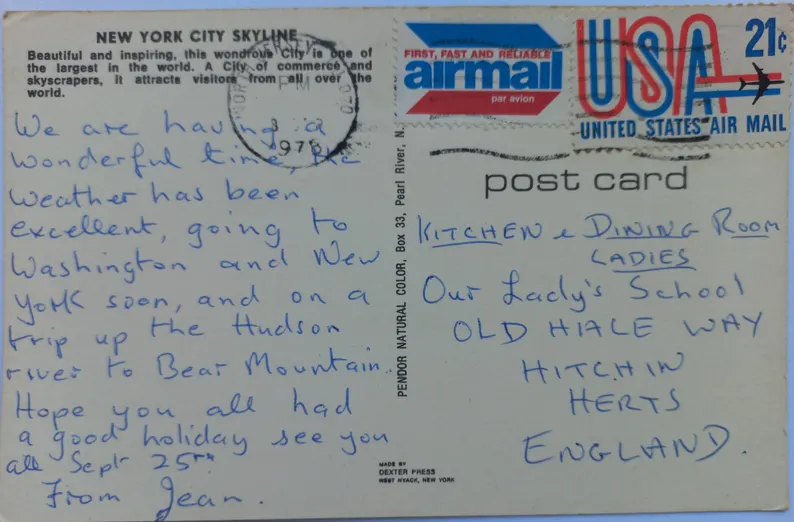 NEW YORK CITY SKYLINE
Beautiful and inspiring, this wondrous City is one of
the largest in the world. A City of commerce and
skyscrapers, it attracts visitors from all over the
world.
We are having a
wonderful time, the
weather has been
excellent, going to
Washington and New
York soon, and on a
trip up the Hudson
river to Bear Mountain.
Hope you all had
a good holiday see you
all Sept 25th
From Jean.
PM
PENDOR NATURAL COLOR, Box 33, Pearl River, N.
MADE BY
DEXTER PRESS
WEST NYACK, NEW YORK
FIRST, FAST AND RELIABLE
airmail
par avion
USA 21¢
UNITED STATES AIR MAIL
post card
KITCHEN & DINING ROOM
LADIES
Our Lady's School
OLD HALE WAY
HITCHIN
HERTS
ENGLAND.